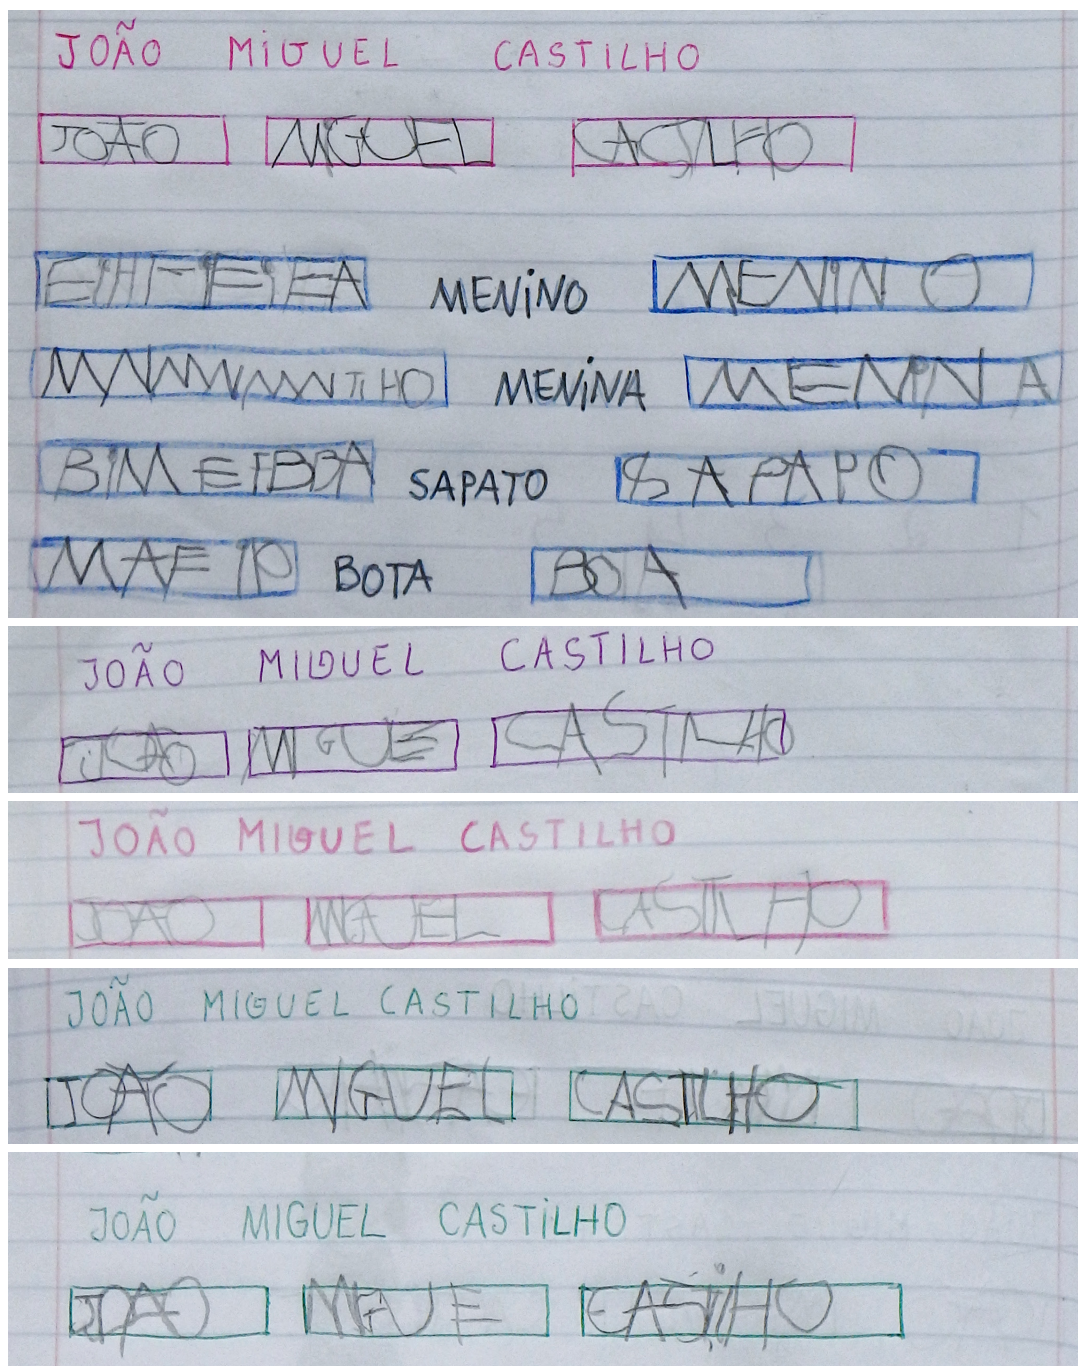 JOÃO MIGUEL CASTILHO
JOAO MGUEL CASTLHO
MENINO MENINO
MENINA MENINA
SAPATO SAPAPO
BOTA BOTA
JOÃO MIGUEL CASTILHO
JOAO MIGUE CASTILHO
JOÃO MIGUEL CASTILHO
JOAO MIGUEL CASTILHO
JOÃO MIGUEL CASTILHO
JOAO MIGUEL CASTILHO
JOÃO MIGUEL CASTILHO
JOAO MIGUE CASTILHO